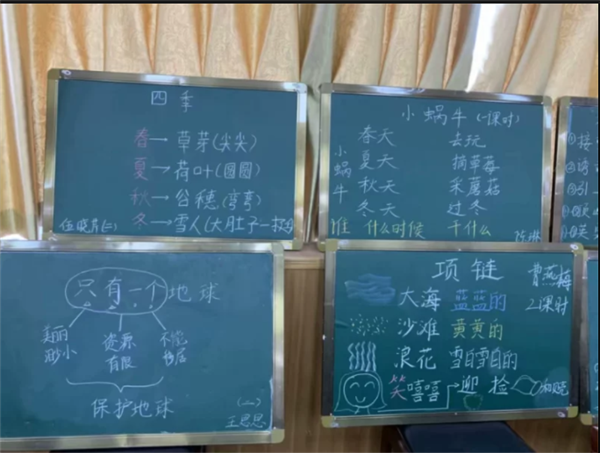 四季
春→草芽(尖尖)
夏→荷叶(圆圆)
秋→谷穗(弯弯)
冬→雪人(大肚子一挺)
小蜗牛(一课时)
小蜗牛
春天 去玩
夏天 摘草莓
秋天 采蘑菇
冬天 过冬
谁 什么时候 干什么
只有一个地球
美丽 资源 不能
渺小 有限 移居
保护地球
(二)
王思思
项链
曹燕梅
2课时
大海 蓝蓝的
沙滩 黄黄的
浪花 雪白雪白的
笑嘻嘻→迎 捡